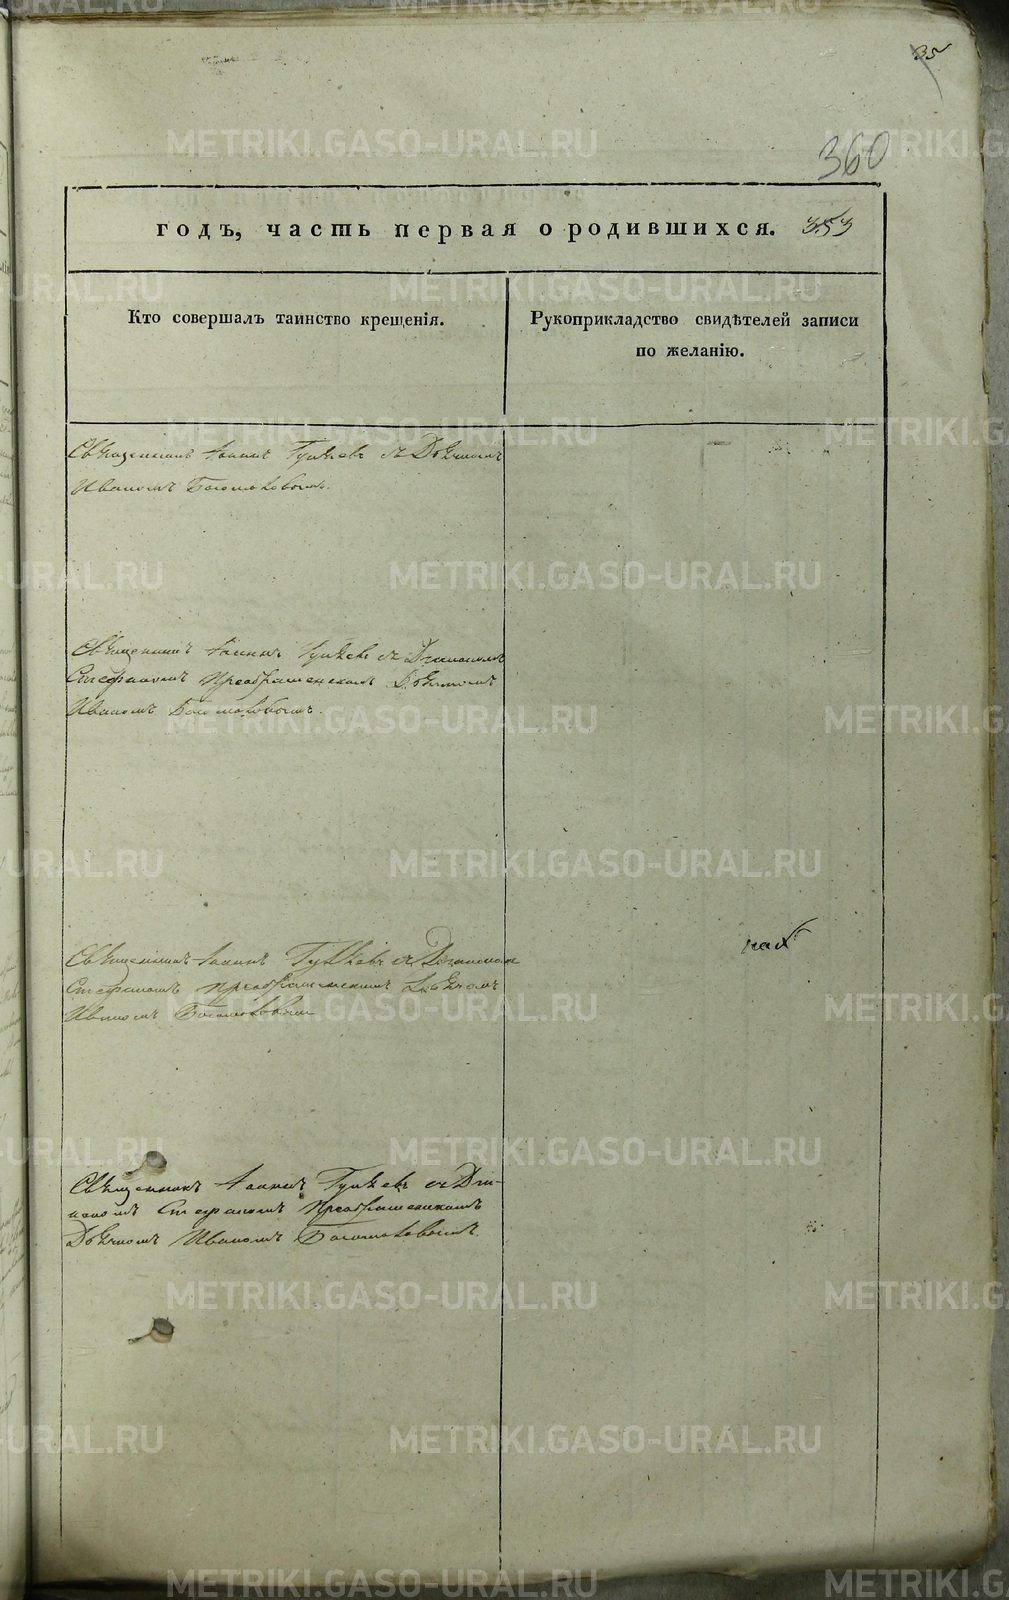 35
360
годъ, часть первая о родившихся. 353
Кто совершалъ таинство крещенія.
Рукоприкладство свидѣтелей записи
по желанію.
Священникъ Іоаннъ съ Дьячкомъ
Иваномъ Богомоловымъ.
Священникъ Іоаннъ съ Діакономъ
Стефаномъ Преображенскимъ Дьячкомъ
Иваномъ Богомоловымъ.
Священникъ Іоаннъ съ Діакономъ
Стефаномъ Преображенскимъ Дьячкомъ
Иваномъ Богомоловым
Священникъ Іоаннъ съ Діа-
кономъ Стефаномъ Преображенскимъ
Дьячкомъ Иваномъ Богомоловымъ.
METRIKI.GASO-URAL.RU